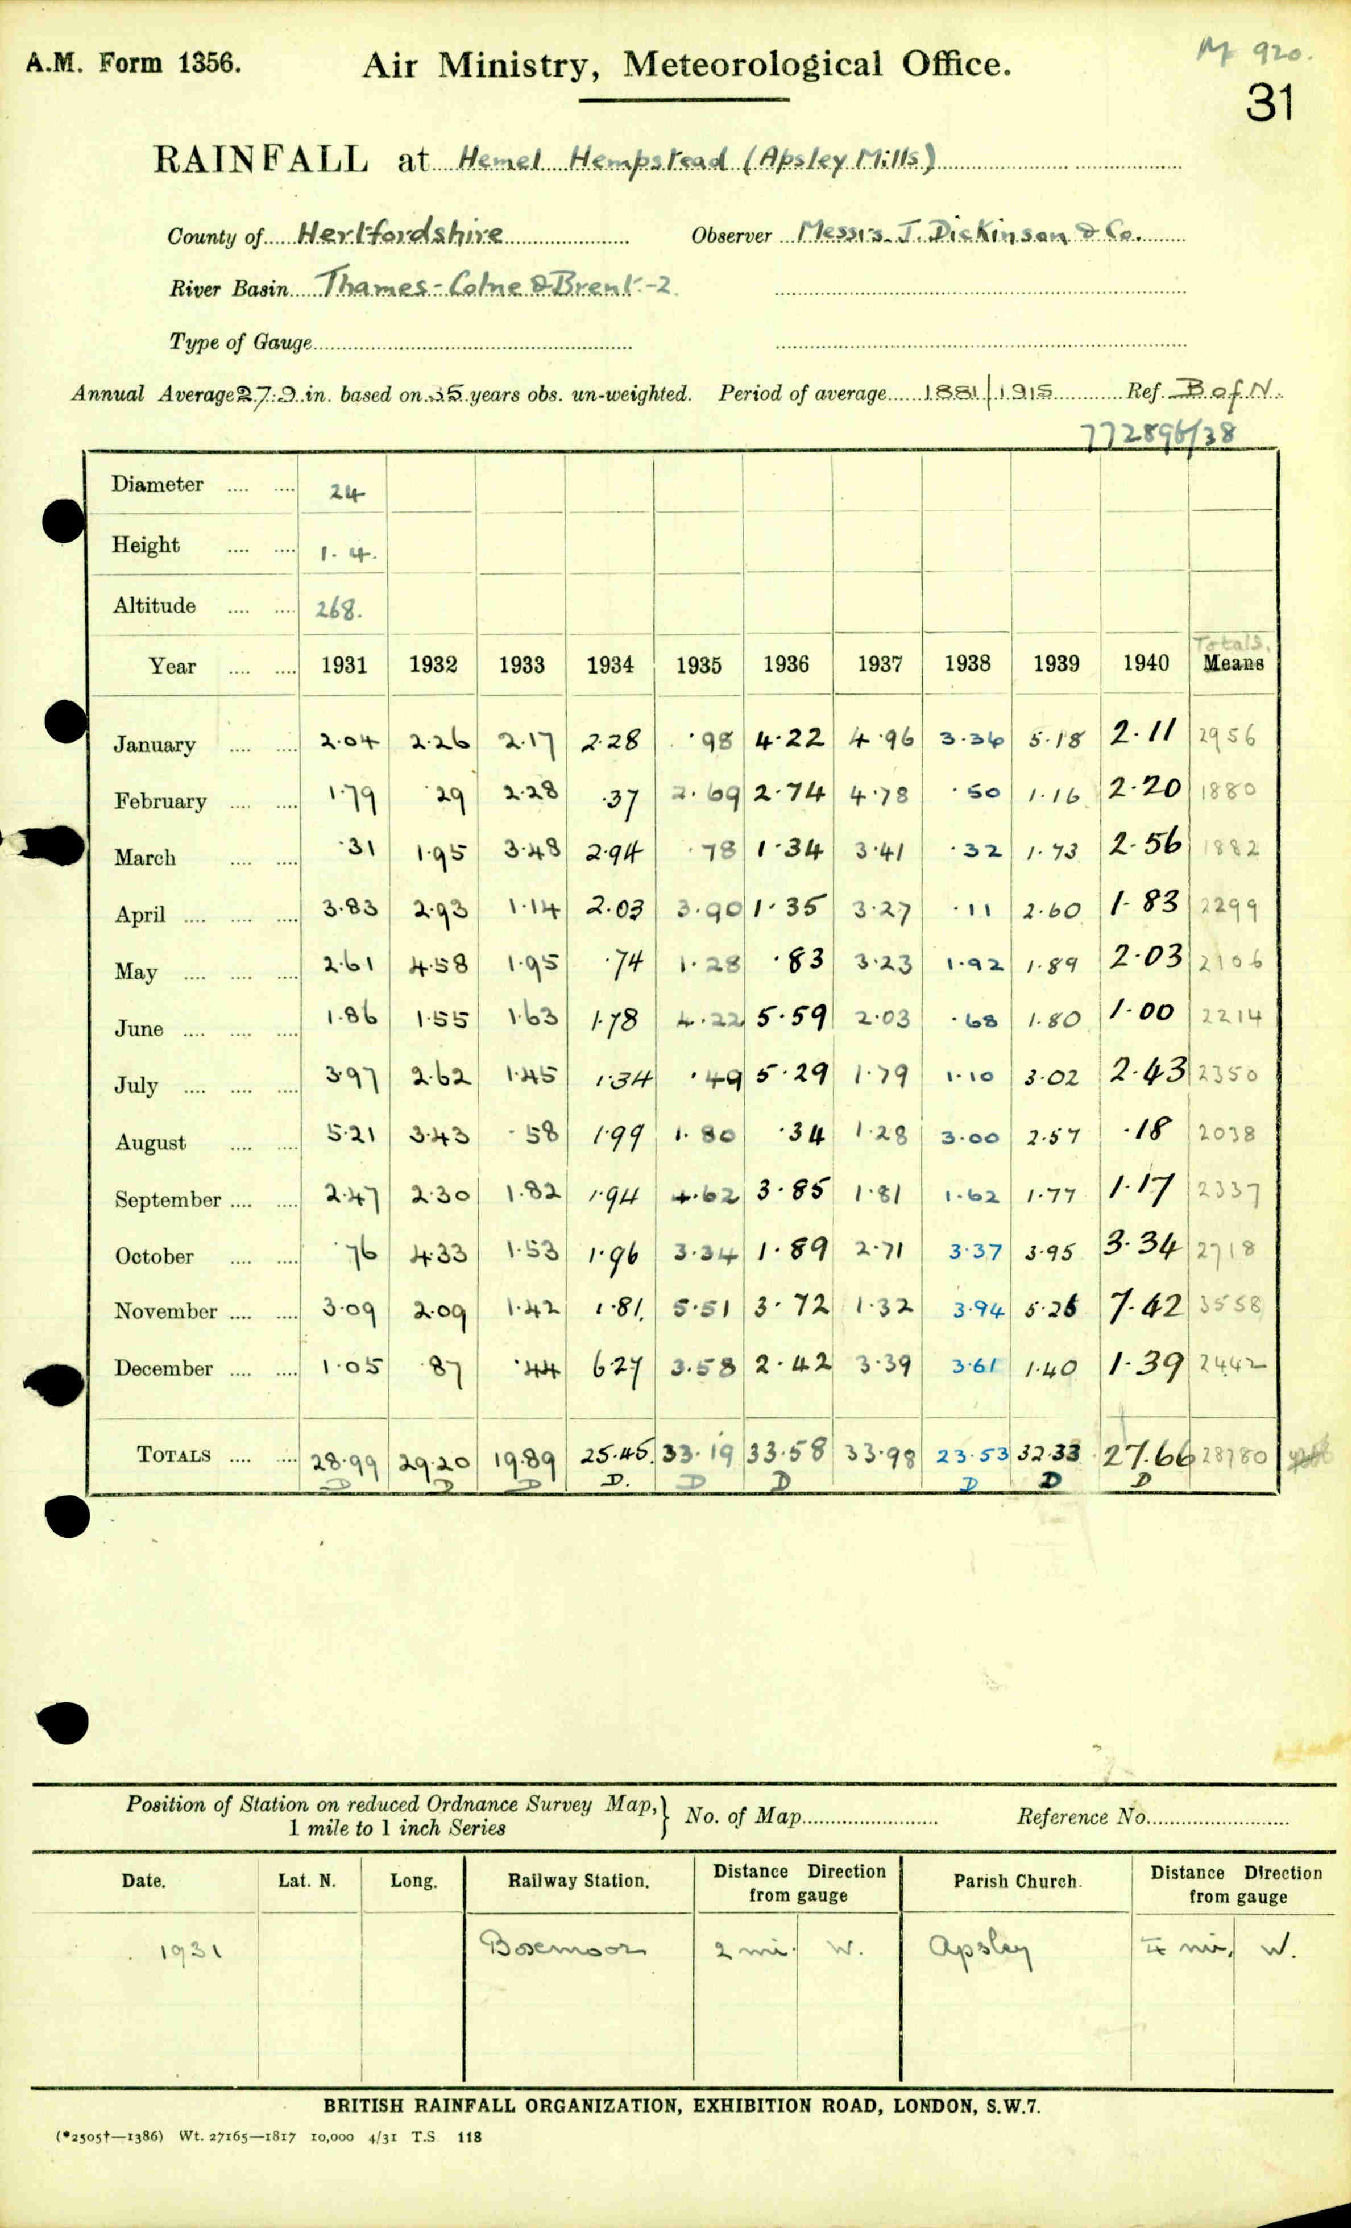 A.M. Form 1356.
Air Ministry, Meteorological Office.
920.
31
RAINFALL at Hemel Hempstead (Apsley Mills)
County of Hertfordshire Observer Messrs. J. Dickinson & Co.
River Basin Thames-Colne & Brent-2.
Type of Gauge
Annual Average 27.9 in. based on 35 years obs. un-weighted. Period of average 1881/1915 Ref. B of N.
772896/38
Diameter 24
Height 1.4.
Altitude 268.
Totals.
Year 1931 1932 1933 1934 1935 1936 1937 1938 1939 1940 Means
January 2.04 2.26 2.17 2.28 .98 4.22 4.96 3.36 5.18 2.11 2956
February 1.79 .29 2.28 .37 2.69 2.74 4.78 .50 1.16 2.20 1880
March .31 1.95 3.48 2.94 .78 1.34 3.41 .32 1.73 2.56 1882
April 3.83 2.93 1.14 2.03 3.90 1.35 3.27 .11 2.60 1.83 2299
May 2.61 4.58 1.95 .74 1.28 .83 3.23 1.92 1.89 2.03 2106
June 1.86 1.55 1.63 1.78 4.22 5.59 2.03 .68 1.80 1.00 2214
July 3.97 2.62 1.45 1.34 .49 5.29 1.79 1.10 3.02 2.43 2350
August 5.21 3.43 .58 1.99 1.80 .34 1.28 3.00 2.57 .18 2038
September 2.47 2.30 1.82 1.94 4.62 3.85 1.81 1.62 1.77 1.17 2337
October .76 4.33 1.53 1.96 3.34 1.89 2.71 3.37 3.95 3.34 2718
November 3.09 2.09 1.42 1.81 5.51 3.72 1.32 3.94 5.26 7.42 3558
December 1.05 .87 .44 6.27 3.58 2.42 3.39 3.61 1.40 1.39 2442
TOTALS 28.99 29.20 19.89 25.45 33.19 33.58 33.98 23.53 32.33 27.66 28780
D D D D. D D D D D
Position of Station on reduced Ordnance Survey Map, } No. of Map Reference No.
1 mile to 1 inch Series
Date. Lat. N. Long. Railway Station. Distance Direction from gauge Parish Church. Distance Direction from gauge
1931 Boxmoor 2 mi. W. Apsley ¼ mi. W.
BRITISH RAINFALL ORGANIZATION, EXHIBITION ROAD, LONDON, S.W.7.
(*2505†—1386) Wt. 27165—1817 10,000 4/31 T.S 118